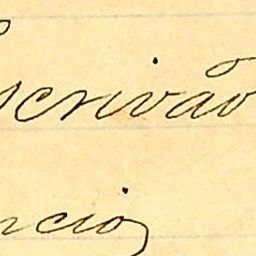 Escrivão
ncio